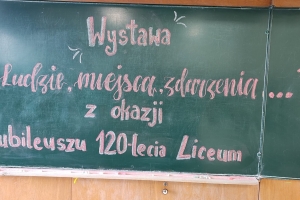 Wystawa
Ludzie, miejsca, zdarzenia...
z okazji
ubileuszu 120-lecia Liceum